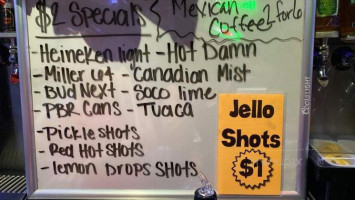 $2 Specials
Mexican
Coffee 2 for 6
- Heineken light - Hot Damn
- Miller 64 - Canadian Mist
- Bud Next - Soco lime
- PBR cans - Tuaca
- Pickle shots
- Red Hot shots
- lemon Drops shots
Jello
Shots
$1